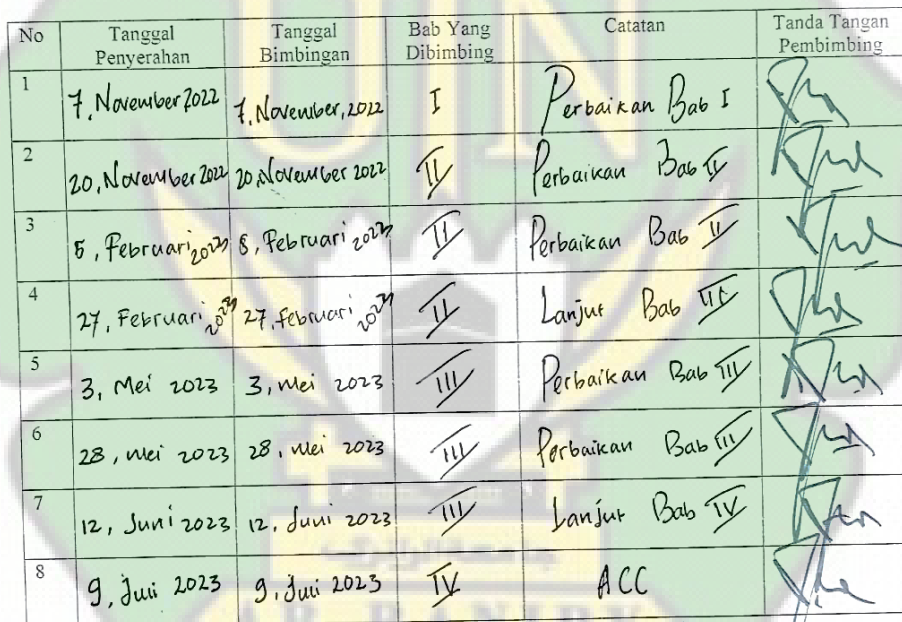 UIN
No Tanggal Penyerahan Tanggal Bimbingan Bab Yang Dibimbing Catatan Tanda Tangan Pembimbing
1 7, November 2022 7, November, 2022 I Perbaikan Bab I
2 20, November 2022 20, November 2022 II Perbaikan Bab II
3 5, Februari 2023 5, Februari 2023 II Perbaikan Bab II
4 27, Februari 2023 27, Februari 2023 II Lanjut Bab III
5 3, Mei 2023 3, Mei 2023 III Perbaikan Bab III
6 28, Mei 2023 28, Mei 2023 III Perbaikan Bab III
7 12, Juni 2023 12, Juni 2023 III Lanjut Bab IV
8 9, Juli 2023 9, Juli 2023 IV ACC